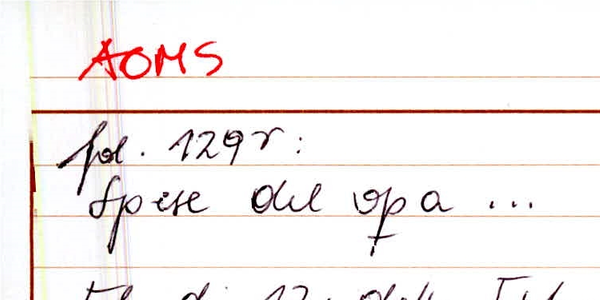 AOMS
fol. 129r:
Spese del opa ...